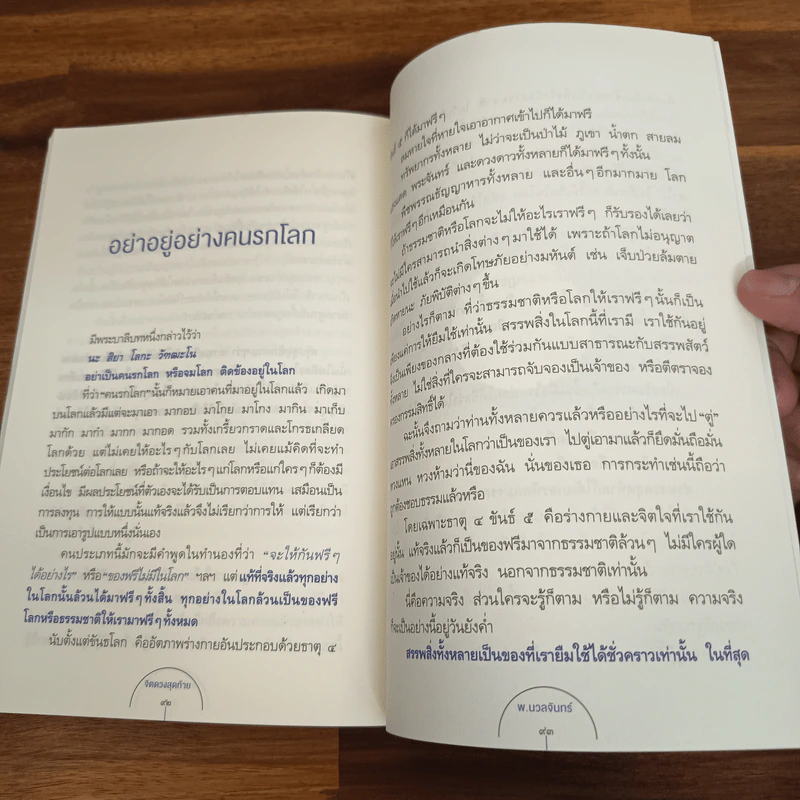 อย่าอยู่อย่างคนรกโลก
มีพระบาลีบทหนึ่งกล่าวไว้ว่า
นะ สิยา โลกะ วัฑฒะโน
อย่าเป็นคนรกโลก หรือจมโลก ติดข้องอยู่ในโลก
ที่ว่า "คนรกโลก" นั้นก็หมายเอาคนที่มาอยู่ในโลกแล้ว เกิดมา
บนโลกแล้วมีแต่จะมาเอา มากอบ มาโกย มาโกง มากิน มาเก็บ
มากัก มากำ มากก มากอด รวมทั้งเกรี้ยวกราดและโกรธเกลียด
โลกด้วย แต่ไม่เคยให้อะไรๆ กับโลกเลย ไม่เคยแม้คิดที่จะทำ
ประโยชน์ต่อโลกเลย หรือถ้าจะให้อะไรๆ แก่โลกหรือแก่ใครๆ ก็ต้องมี
เงื่อนไข มีผลประโยชน์ที่ตัวเองจะได้รับเป็นการตอบแทน เสมือนเป็น
การลงทุน การให้แบบนั้นแท้จริงแล้วจึงไม่เรียกว่าการให้ แต่เรียกว่า
เป็นการเอารูปแบบหนึ่งนั่นเอง
คนประเภทนี้มักจะมีคำพูดในทำนองที่ว่า "จะให้กันฟรีๆ
ได้อย่างไร" หรือ "ของฟรีไม่มีในโลก" ฯลฯ แต่แท้ที่จริงแล้วทุกอย่าง
ในโลกนั้นล้วนได้มาฟรีๆ ทั้งสิ้น ทุกอย่างในโลกล้วนเป็นของฟรี
โลกหรือธรรมชาติให้เรามาฟรีๆ ทั้งหมด
นับตั้งแต่ขันธโลก คืออัตภาพร่างกายอันประกอบด้วยธาตุ ๔
จิตดวงสุดท้าย
๙๒
๕ ก็ได้มาฟรีๆ
ลมหายใจที่หายใจเอาอากาศเข้าไปก็ได้มาฟรี
ทรัพยากรทั้งหลาย ไม่ว่าจะเป็นป่าไม้ ภูเขา น้ำตก สายลม
พระจันทร์ และดวงดาวทั้งหลายก็ได้มาฟรีๆ ทั้งนั้น
พืชพรรณธัญญาหารทั้งหลาย และอื่นๆ อีกมากมาย โลก
ก็ให้เราฟรีๆ อีกเหมือนกัน
ถ้าธรรมชาติหรือโลกจะไม่ให้อะไรเราฟรีๆ ก็รับรองได้เลยว่า
จะไม่มีใครสามารถนำสิ่งต่างๆ มาใช้ได้ เพราะถ้าโลกไม่อนุญาต
นำไปใช้แล้วก็จะเกิดโทษภัยอย่างมหันต์ เช่น เจ็บป่วยล้มตาย
ภัยพิบัติต่างๆ ขึ้น
อย่างไรก็ตาม ที่ว่าธรรมชาติหรือโลกให้เราฟรีๆ นั้นก็เป็น
เพียงแค่การให้ยืมใช้เท่านั้น สรรพสิ่งในโลกนี้ที่เรามี เราใช้กันอยู่
จึงเป็นเพียงของกลางที่ต้องใช้ร่วมกันแบบสาธารณะกับสรรพสัตว์
ทั้งหลาย ไม่ใช่สิ่งที่ใครจะสามารถจับจองเป็นเจ้าของ หรือตีตราจอง
กรรมสิทธิ์ได้
ฉะนั้นจึงถามว่าท่านทั้งหลายควรแล้วหรืออย่างไรที่จะไป "ตู่"
เอาสรรพสิ่งทั้งหลายในโลกว่าเป็นของเรา ไปตู่เอามาแล้วก็ยึดมั่นถือมั่น
หวงแหน หวงห้ามว่านี่ของฉัน นั่นของเธอ การกระทำเช่นนี้ถือว่า
ถูกต้องชอบธรรมแล้วหรือ
โดยเฉพาะธาตุ ๔ ขันธ์ ๕ คือร่างกายและจิตใจที่เราใช้กัน
อยู่นั้น แท้จริงแล้วก็เป็นของฟรีมาจากธรรมชาติล้วนๆ ไม่มีใครผู้ใด
เป็นเจ้าของได้อย่างแท้จริง นอกจากธรรมชาติเท่านั้น
นี่คือความจริง ส่วนใครจะรู้ก็ตาม หรือไม่รู้ก็ตาม ความจริง
ก็จะเป็นอย่างนี้อยู่วันยังค่ำ
สรรพสิ่งทั้งหลายเป็นของที่เรายืมใช้ได้ชั่วคราวเท่านั้น ในที่สุด
พ.นวลจันทร์
๙๓